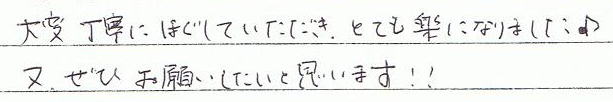 大変丁寧にほぐしていただき、とても楽になりました♪
又、ぜひお願いしたいと思います!!